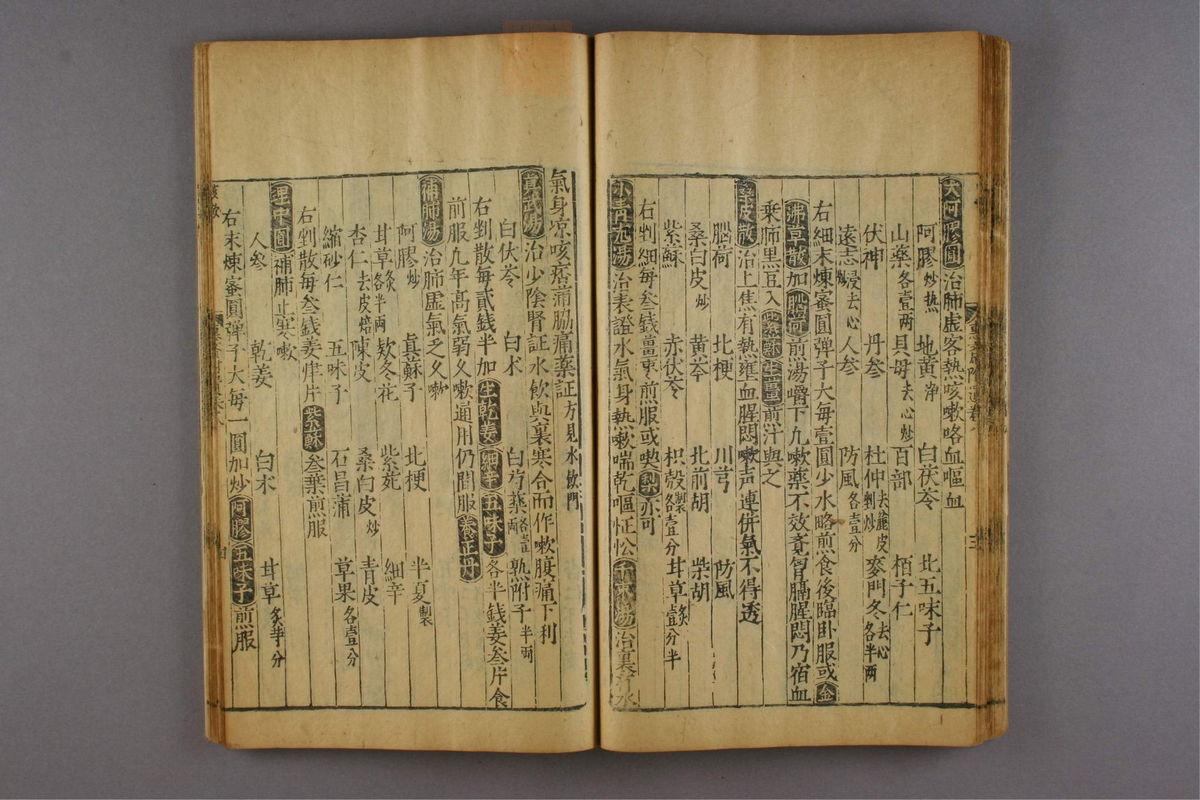 大阿膠圓治肺虛客熱咳嗽咯血嘔血
阿膠炒熱 地黃淨 白茯苓 北五味子
山藥各壹兩 貝母去心炒 百部 栢子仁
伏神 丹參 杜仲去麄皮剉炒 麥門冬去心各半兩
遠志浸去心 人參 防風各壹分
右細末煉蜜圓彈子大每壹圓少水略煎食後臨卧服或金
沸草散加薄荷煎湯嚼下九嗽藥不效竟胷膈腥悶乃宿血
乗肺黑豆入紫蘇生薑煎汁與之
皮散治上焦有熱壅血腥悶嗽声連併氣不得透
腦荷 北梗 川芎 防風
桑白皮炒 黃芩 北前胡 柴胡
紫蘇 赤伏苓 枳殼製各壹分 甘草炙壹分半
右剉細每叄錢薑棗煎服或喫梨亦可
小青龙湯治表證水氣身熱嗽喘乾嘔怔忪十棗湯治裏汗水
氣身凉咳痞滿脇痛藥証方見水飲門
真武湯治少陰腎証水飲與裏寒合而作嗽腹痛下利
白伏苓 白术 白芍藥各壹兩 熟附子半兩
右剉散每貳錢半加生乾姜細辛五味子各半錢姜叄片食
前服九年高氣弱久嗽通用仍間服養正丹
補肺湯治肺虛氣乏久嗽
阿膠炒 真蘇子 北梗 半夏製
甘草炙各半兩 欵冬花 紫菀 細辛
杏仁去皮焙 陳皮 桑白皮炒 青皮
縮砂仁 五味子 石昌蒲 草果各壹分
右剉散每叄錢姜肆片紫蘇叄葉煎服
理中圓補肺止寒嗽
人參 乾姜 白朮 甘草炙半分
右末煉蜜圓彈子大每一圓加炒阿膠五味子煎服